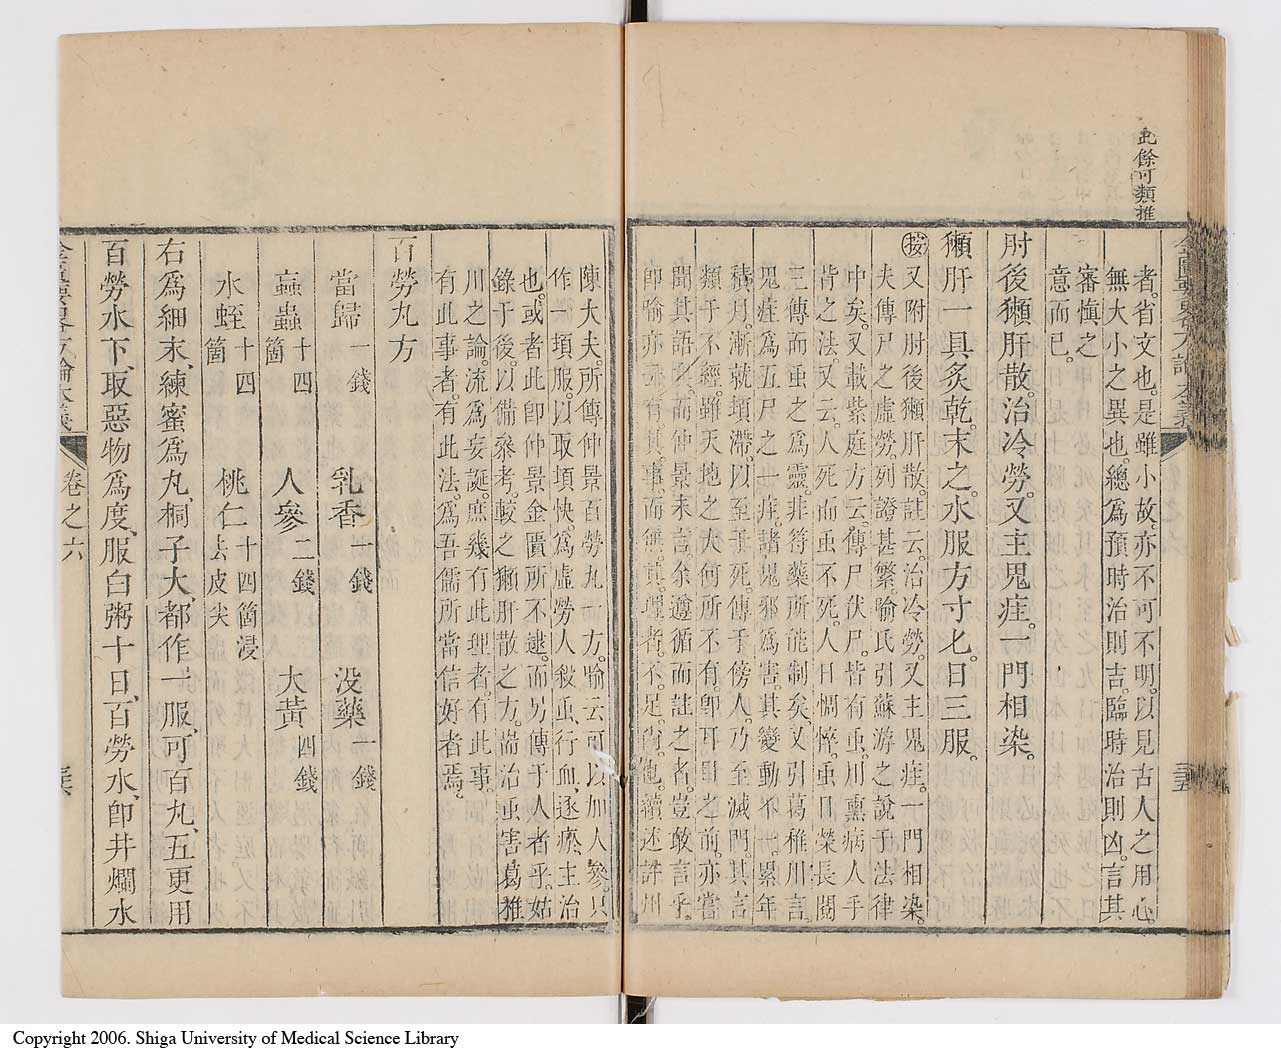 此餘可類推
者省文也是雖小故亦不可不明以見古人之用心
無大小之異也總爲預時治則吉臨時治則凶言其
審愼之
意而已
肘後獺肝散治冷勞又主鬼疰一門相染
獺肝一具炙乾末之水服方寸匕日三服
按又附肘後獺肝散註云治冷勞又主鬼疰一門相染
夫傳尸之虛勞列證甚繁喻氏引蘇游之說于法律
中矣又載紫庭方云傳尸伏尸皆有虫川熏病人手
背之法又云人死而虫不死人日惆悴虫日榮長閱
三傳而虫之爲靈非符藥所能制矣又引葛稚川言
鬼疰爲五尸之一疰諸鬼邪爲害其變動不一累年
積月漸就頓滯以至于死傳于傍人乃至滅門其言
類于不經雖天地之大何所不有卽耳目之前亦嘗
聞其語矣而仲景未言余遵循而註之者豈敢言乎
卽喻亦云有其事而無其理者不足尚也續述許州
陳大夫所傳仲景百勞丸一方喻云可以加人參只
作一頓服以取頓快爲虛勞人殺虫行血逐瘀主治
也或者此卽仲景金匱所不逮而乃傳于人者乎姑
錄于後以備叅考較之獺肝散之方耑治虫害葛稚
川之論流爲妄誕庶幾有此理者有此事
有此事者有此法爲吾儒所當信好者焉
百勞丸方
當歸一錢 乳香一錢 没藥一錢
蝱蟲十四箇 人參二錢 大黃四錢
水蛭十四箇 桃仁十四箇浸去皮尖
右爲細末練蜜爲丸桐子大都作一服可百丸五更用
百勞水下取惡物爲度服白粥十日百勞水卽井爛水
卷之六
Copyright 2006. Shiga University of Medical Science Library